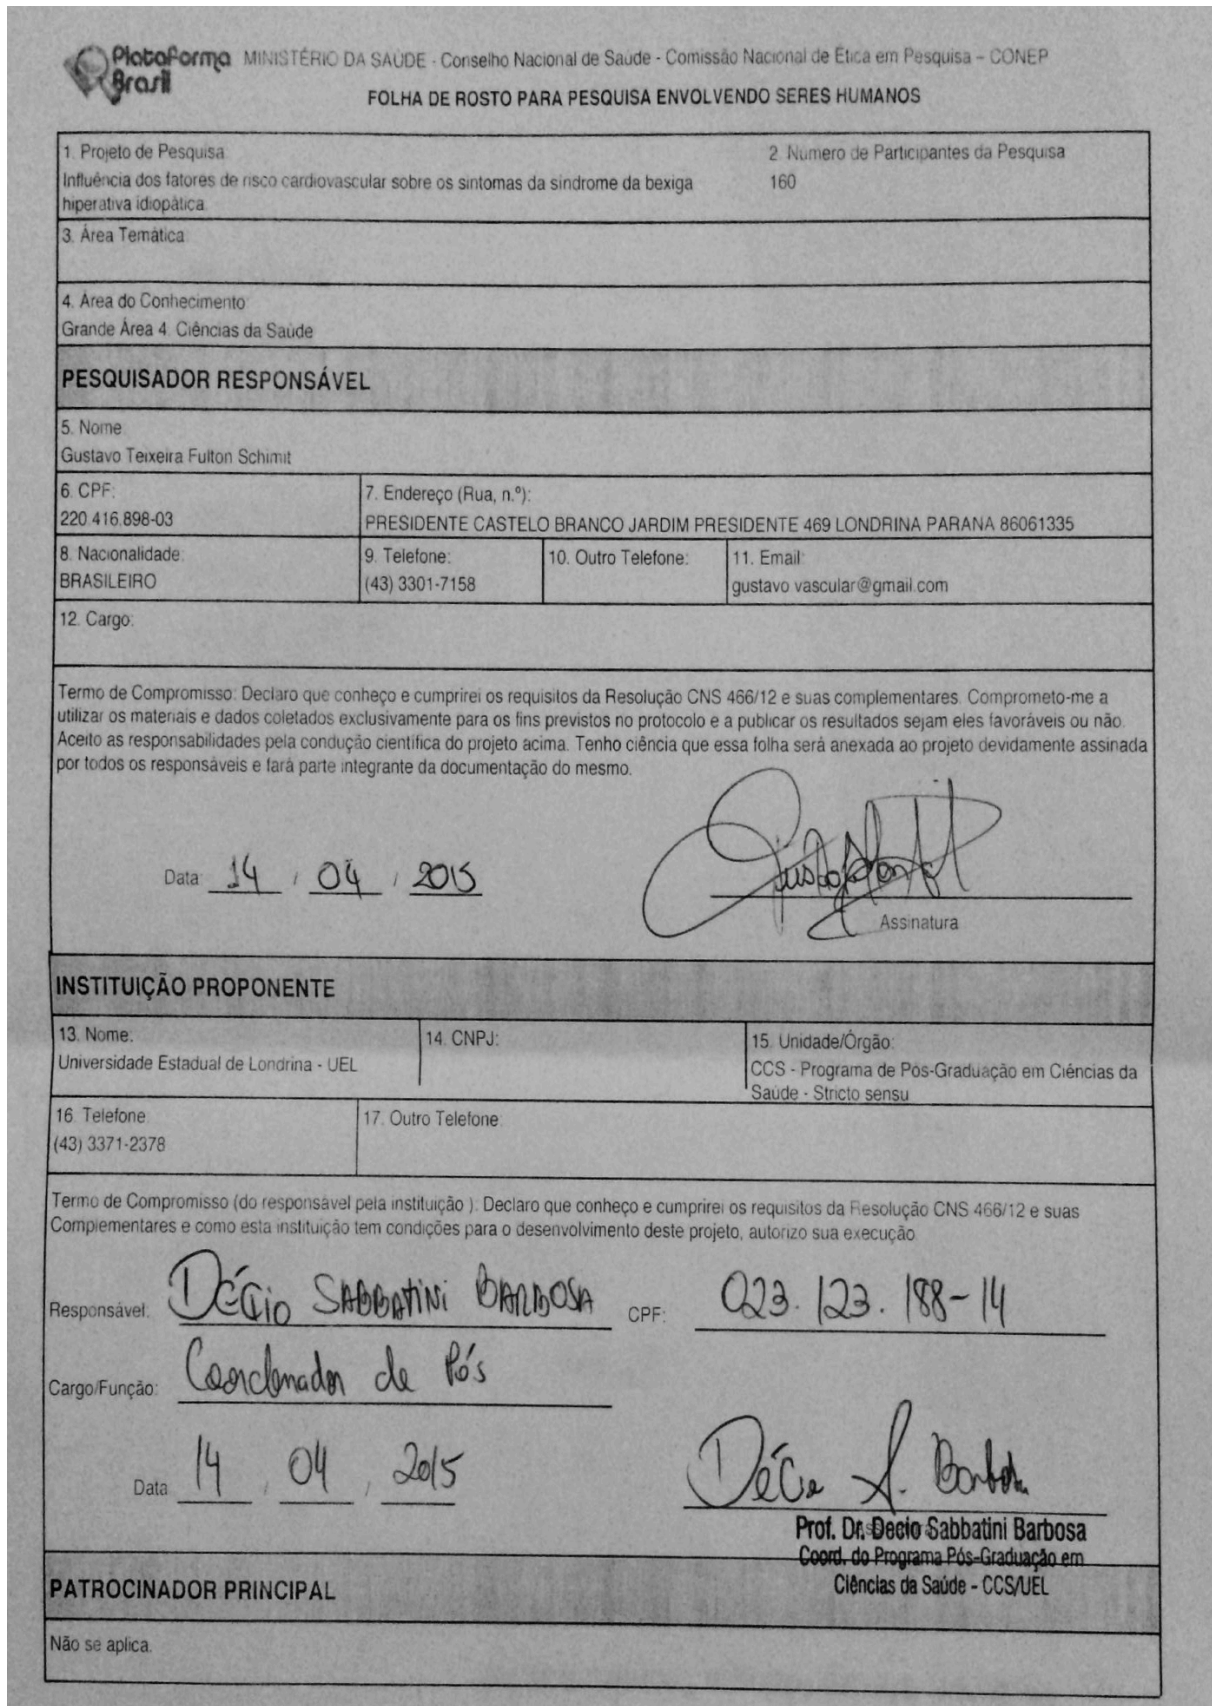 Plataforma Brasil
MINISTÉRIO DA SAÚDE - Conselho Nacional de Saúde - Comissão Nacional de Ética em Pesquisa – CONEP
FOLHA DE ROSTO PARA PESQUISA ENVOLVENDO SERES HUMANOS
1. Projeto de Pesquisa:
Influência dos fatores de risco cardiovascular sobre os sintomas da síndrome da bexiga
hiperativa idiopática.
2. Número de Participantes da Pesquisa:
160
3. Área Temática:
4. Área do Conhecimento:
Grande Área 4. Ciências da Saúde
PESQUISADOR RESPONSÁVEL
5. Nome:
Gustavo Teixeira Fulton Schimit
6. CPF:
220.416.898-03
7. Endereço (Rua, n.º):
PRESIDENTE CASTELO BRANCO JARDIM PRESIDENTE 469 LONDRINA PARANA 86061335
8. Nacionalidade:
BRASILEIRO
9. Telefone:
(43) 3301-7158
10. Outro Telefone:
11. Email:
gustavo.vascular@gmail.com
12. Cargo:
Termo de Compromisso: Declaro que conheço e cumprirei os requisitos da Resolução CNS 466/12 e suas complementares. Comprometo-me a
utilizar os materiais e dados coletados exclusivamente para os fins previstos no protocolo e a publicar os resultados sejam eles favoráveis ou não.
Aceito as responsabilidades pela condução científica do projeto acima. Tenho ciência que essa folha será anexada ao projeto devidamente assinada
por todos os responsáveis e fará parte integrante da documentação do mesmo.
Data: 14 / 04 / 2015
Assinatura
INSTITUIÇÃO PROPONENTE
13. Nome:
Universidade Estadual de Londrina - UEL
14. CNPJ:
15. Unidade/Órgão:
CCS - Programa de Pós-Graduação em Ciências da
Saúde - Stricto sensu
16. Telefone:
(43) 3371-2378
17. Outro Telefone:
Termo de Compromisso (do responsável pela instituição ): Declaro que conheço e cumprirei os requisitos da Resolução CNS 466/12 e suas
Complementares e como esta instituição tem condições para o desenvolvimento deste projeto, autorizo sua execução.
Responsável: DÉCIO SABBATINI BARBOSA CPF: 023.123.188-14
Cargo/Função: Coordenador de Pós
Data: 14 / 04 / 2015
Décio S. Barbosa
Prof. Dr. Decio Sabbatini Barbosa
Coord. do Programa Pós-Graduação em
Ciências da Saúde - CCS/UEL
PATROCINADOR PRINCIPAL
Não se aplica.